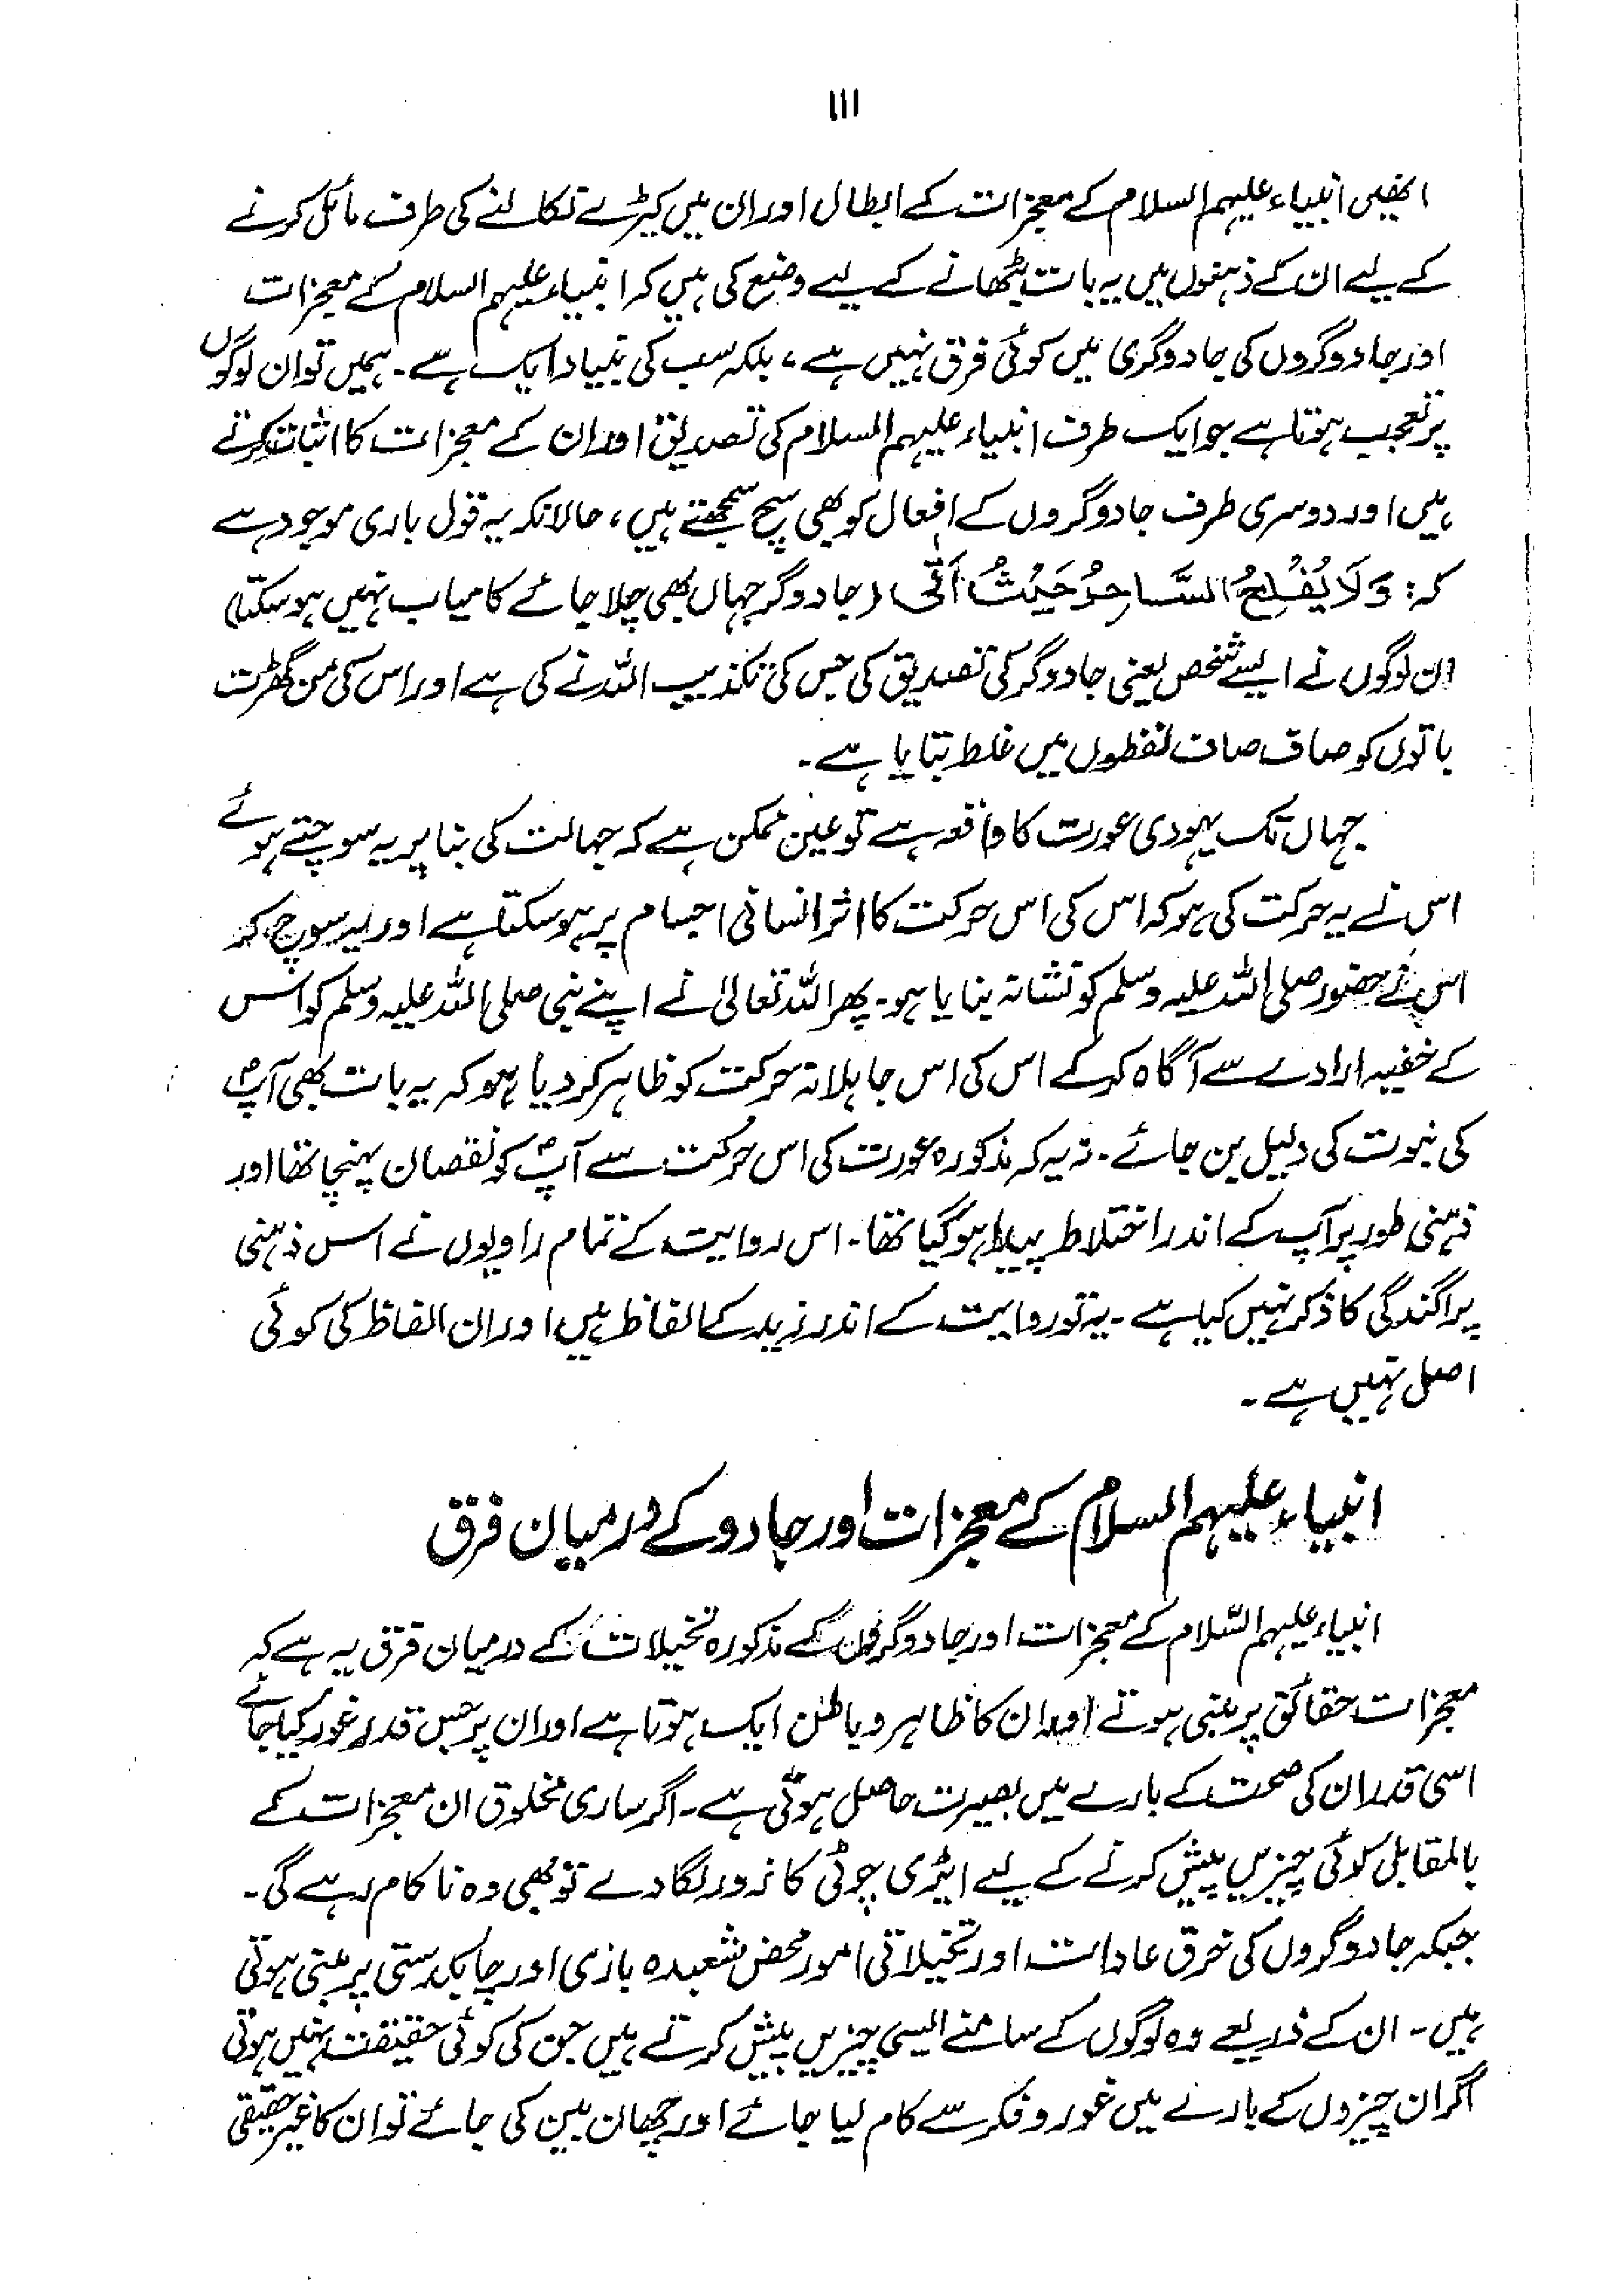 ۱۱۱
انھیں انبیاء علیہم السلام کے معجزات کے ابطال اور ان میں کیڑے نکالنے کی طرف مائل کرنے
کے لیے ان کے ذہنوں میں یہ بات بٹھانے کے لیے وضع کی ہیں کہ انبیاء علیہم السلام کے معجزات
اور جادوگروں کی جادوگری میں کوئی فرق نہیں ہے، بلکہ سب کی بنیاد ایک ہے۔ ہمیں تو ان لوگوں
پر تعجب ہوتا ہے جو ایک طرف انبیاء علیہم السلام کی تصدیق اور ان کے معجزات کا اثبات کرتے
ہیں اور دوسری طرف جادوگروں کے افعال کو بھی سچ سمجھتے ہیں، حالانکہ یہ قول باری موجود ہے
کہ: وَلَا يُفْلِحُ السَّاحِرُ حَيْثُ اَتٰى (جادوگر جہاں بھی چلا جائے کامیاب نہیں ہو سکتا)
ان لوگوں نے ایسے شخص یعنی جادوگر کی تصدیق کی جس کی تکذیب اللہ نے کی ہے اور اس کی من گھڑت
باتوں کو صاف صاف لفظوں میں غلط بتایا ہے۔
جہاں تک یہودی عورت کا واقعہ ہے تو عین ممکن ہے کہ جہالت کی بنا پر یہ سوچتے ہوئے
اس نے یہ حرکت کی ہو کہ اس کی اس حرکت کا اثر انسانی اجسام پر ہو سکتا ہے اور یہ سوچ کر
اس نے حضور صلی اللہ علیہ وسلم کو نشانہ بنایا ہو۔ پھر اللہ تعالیٰ نے اپنے نبی صلی اللہ علیہ وسلم کو اس
کے خفیہ ارادے سے آگاہ کر کے اس کی اس جاہلانہ حرکت کو ظاہر کر دیا ہو کہ یہ بات بھی آپؐ
کی نبوت کی دلیل بن جائے۔ نہ یہ کہ مذکورہ عورت کی اس حرکت سے آپؐ کو نقصان پہنچا تھا اور
ذہنی طور پر آپ کے اندر اختلاط پیدا ہو گیا تھا۔ اس روایت کے تمام راویوں نے اس ذہنی
پراگندگی کا ذکر نہیں کیا ہے۔ یہ تو روایت کے اندر زید کے الفاظ ہیں اور ان الفاظ کی کوئی
اصل نہیں ہے۔
انبیاء علیہم السلام کے معجزات اور جادو کے درمیان فرق
انبیاء علیہم السّلام کے معجزات اور جادوگروں کے مذکورہ تخیلات کے درمیان فرق یہ ہے کہ
معجزات حقائق پر مبنی ہوتے اور ان کا ظاہر و باطن ایک ہوتا ہے اور ان پر جس قدر غور کیا جائے
اسی قدر ان کی صحت کے بارے میں بصیرت حاصل ہوتی ہے۔ اگر ساری مخلوق ان معجزات کے
بالمقابل کوئی چیزیں پیش کرنے کے لیے ایڑی چوٹی کا زور لگا دے تو بھی وہ ناکام رہے گی۔
جبکہ جادوگروں کی خرق عادات اور تخیلاتی امور محض شعبدہ بازی اور چابکدستی پر مبنی ہوتی
ہیں۔ ان کے ذریعے وہ لوگوں کے سامنے ایسی چیزیں پیش کرتے ہیں جن کی کوئی حقیقت نہیں ہوتی
اگر ان چیزوں کے بارے میں غور و فکر سے کام لیا جائے اور چھان بین کی جائے تو ان کا غیر حقیقی